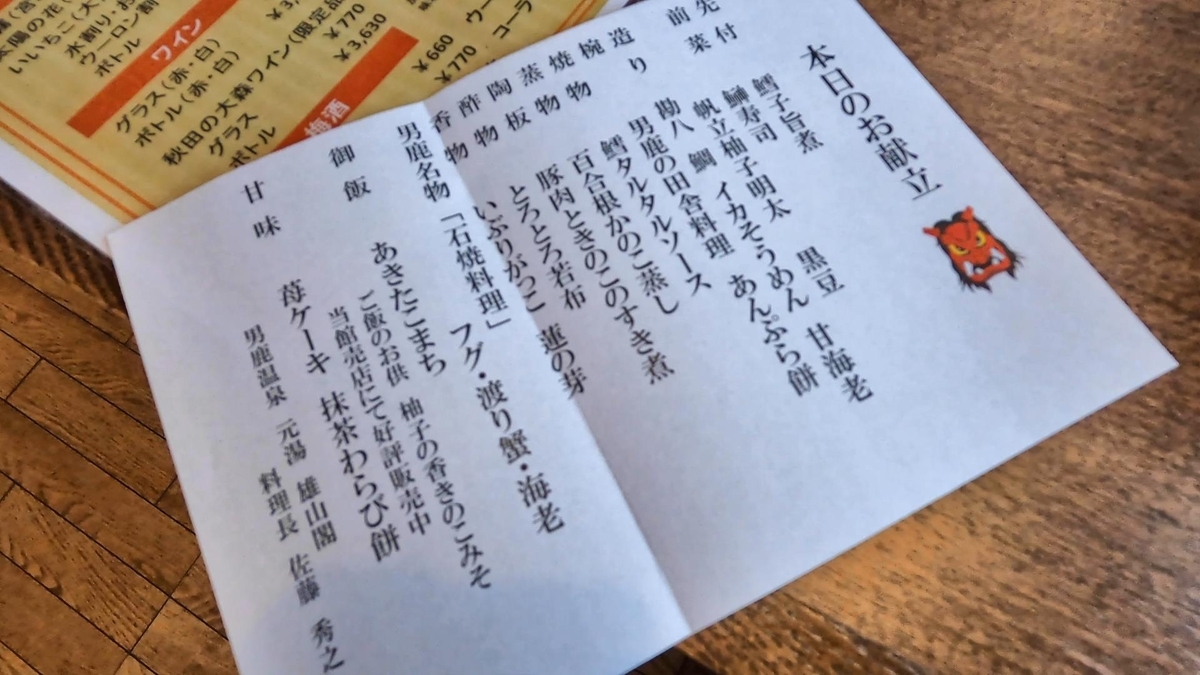 本日のお献立
先付 鱈子旨煮
前菜 鰰寿司
帆立柚子明太 黒豆
造り 勘八 鯛 イカそうめん 甘海老
椀物 男鹿の田舎料理 あんぷら餅
焼物 鱈タルタルソース
蒸物 百合根かのこ蒸し
陶板 豚肉ときのこのすき煮
酢物 とろとろ若布
香物 いぶりがっこ 蓮の芽
男鹿名物 「石焼料理」 フグ・渡り蟹・海老
御飯 あきたこまち
ご飯のお供 柚子の香きのこみそ
当館売店にて好評販売中
甘味 苺ケーキ 抹茶わらび餅
男鹿温泉 元湯 雄山閣
料理長 佐藤 秀之
太陽の花(大
いいちこ(大
水割り・お
ウーロン割
ボトル
ワイン
グラス(赤・白)
ボトル(赤・白)
秋田の大森ワイン(限定品
グラス
ボトル
¥770
¥3,630
梅酒
¥660
¥770
コーラ